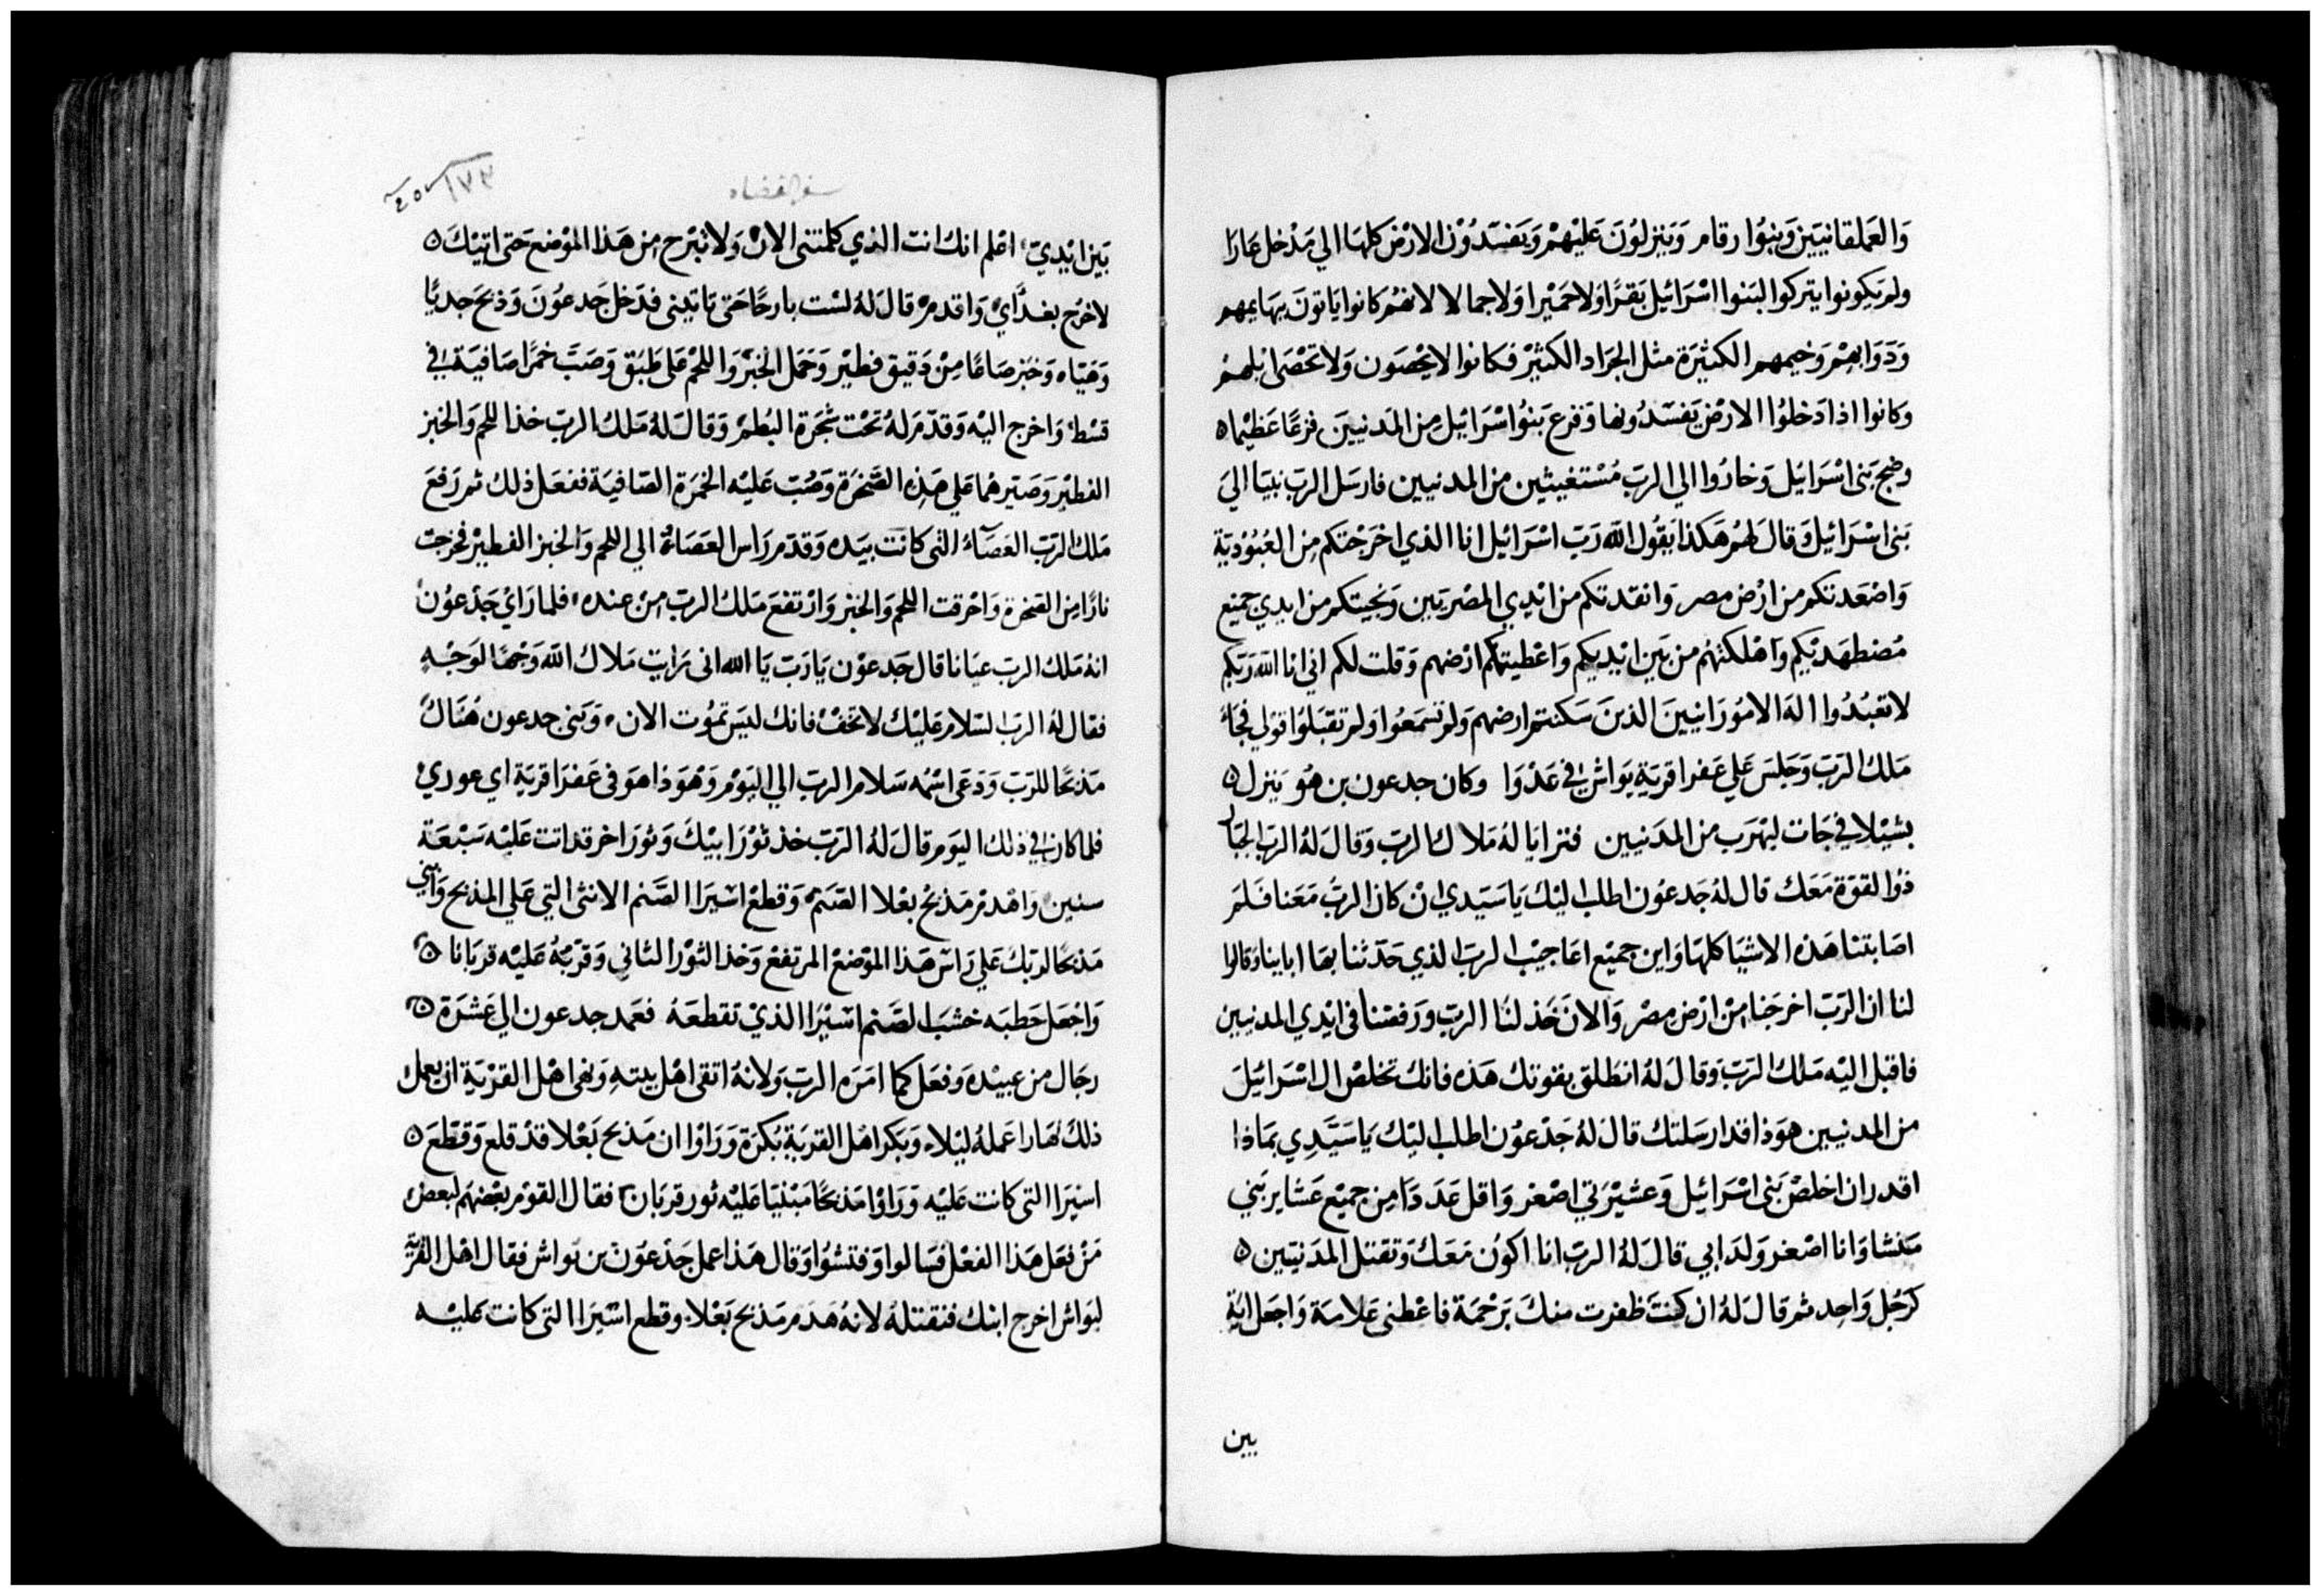 وَالعَملقانيَين وَبنوُا رقام وَينزلوُنَ عَليْهمْ وَيَفسّدُوْن الارْض كلهَا الي مَدْخل عَازا
ولم يَكونوا يتركوا لبَنوا اسْرَائيل بَقرًا ولا حَميْرا وَلا جمالا لانهُم كانوا ياتونَ بهَايمهم
وَدَوَابهمْ وَخيمهم الكثيْرَة مثل الجرَاد الكثيْر فكانوا لا يحْصَون وَلا تحْصَى ابلهمْ
وكانوا اذا دَخلوُا الارْض يَفسّدُونها وَفزع بَنوُا اسْرَائيْل مِن المَدنيينَ فزعًا عَظيْما ه
وضج بَنى اسْرَائيْل وَخارُوا الي الربّ مُسْتغيثين من المدنيين فارسَل الربّ نبيَا اليَ
بَنى اسْرَائيل وَقالَ لهُم هَكذا يَقُول الله رَبّ اسْرَائيل انا الذي اخْرَجْتكم مِن العُبُوْديَة
وَاصْعَدتكم من ارْض مصر وَانقدتكم من ايْدي المصْريَين وَنجيتكم من ايدي جميْع
مُضطهَديْكم وَاهْلكتهُم من بَين ايْديكم وَاعْطيتكم ارْضهم وَقلت لكم اني انا الله رَبكم
لا تعْبُدُوا الهَ الامُورَانيينَ الذينَ سَكنتم ارضهم وَلم تسمَعُوا وَلم تقبَلوُا قولي فجَاءَ
مَلك الربّ وَجَلسَ عَلي عَفرا قريَة يَواش في عَدْوَا وكان جدعون بن هُو يَنزل ه
بشيْلا في جَات ليَهرَب من المدَنيين فترايا لهُ مَلاك الربّ وَقال لهُ الربّ الجبَار
ذوُا القوَة مَعَك قال لهُ جَدعوُن اطلب اليْك يَا سَيّدي ان كان الربُّ مَعَنا فَلمَ
اصَابتنا هَذه الاشيَا كلهَا وَاين جميْع اعَاجيْب الربّ الذي حَدّثنا بهَا اباينا وَقالوا
لنا ان الرَبّ اخرجَنا مِنْ ارْض مصْر وَالانَ خَذلنَا الربّ وَرَفضنا في ايْدي المدنيين
فاقبل اليْه مَلك الرَبّ وَقالَ لهُ انطَلق بقوتك هَذه فانك تخلصْ ال اسْرَائيْلَ
من المدنيين هوَذا قد ارسَلتك قالَ لهُ جَدْعوُن اطلب اليْك يَا سَيّدِي بمَاذا
اقدر ان اخلصْ بَنى اسْرَائيل وَعشيْرَتي اصْغر وَاقل عَدَدًا مِن جميْع عَشاير بَني
مَنشا وَانا اصْغر وَلد ابي قالَ لهُ الربّ انا اكوُن مَعَك وَتقتل المدَنيَين ه
كرَجُل وَاحِد ثم قالَ لهُ ان كنتَ ظفرت منكَ برَحْمَة فاعْطنى عَلامَة وَاجعَل ايَة
بين
سفر القضاه
١٧٣
بَين ايْديّ اعْلم انك انت الذي كلمتنى الانْ وَلا تبْرح مِن هَذا الموْضع حَتى اتيْكَ ه
لاخرُج بغدَايْ وَاقدمْ قالَ لهُ لسْت بارحًا حَتى تاتينى فدَخل جَدعوُنَ وَذبحَ جديًا
وَهيَاه وَخبَز صَاعًا مِنْ دَقيق فطيْر وَحَمَل الخبْز وَاللحْم عَلي طَبَق وَصَبّ خمرًا صَافيَة في
قسْط وَاخرج اليْه وَقدّمَ لهُ تَحْت شجَرة البُطمْ وَقالَ لهُ مَلك الربّ خذ اللحم وَالخبز
الفطيْر وَصَيّرهُما عَلي هَذه الصَّخرَة وَصُبّ عَليْه الخمرَة الصَافيَة ففعَل ذلك ثم رَفعَ
مَلك الربّ العَصَاءُ التى كانت بيَده وَقدّم رَاس العَصَاءُ الي اللحم وَالخبز الفطيْر فخرجت
نارًا مِن الصخرة وَاحْرقت اللحم وَالخبز وَارْتفعَ مَلك الربّ منْ عنده فلما رَايْ جَدْعوُن
انهُ مَلك الربّ عيَانا قال جَدعوْن يَا رَبّ يَا الله انى رَايت مَلاك الله وَجْهًا لوَجْهٍ
فقال لهُ الربّ السَلام عَليْك لا تَخفْ فانك ليسَ تموُت الان وَبَنى جدعون هُنَاك
مَذبحًا للرَبّ وَدَعَى اسْمُه سَلام الربّ الي اليَوْم وَهْوَذا هوَ في عَفرَا قريَة اي عوريْ
فلما كان في ذلك اليَوم قالَ لهُ الرَبّ خذ ثوْرَ ابيْكَ وَثورَ اخر قد اتت عَليْه سَبْعَة
سنين وَاهْدم مَذبحُ بعْلا الصَنمْ وَقطعْ اشيرَا الصَّنم الانثى التي عَلي المذبح وَابْني
مَذبحًا لربّكَ عَلي رَاسْ هَذا الموْضعْ المرتفعْ وَخذ الثوْر الثاني وَقرّبْهُ عَليْه قربَانا ه
وَاجْعَل حَطبَه خشبَ الصَّنم اشيْرَا الذيْ تقطعَهُ فعَمد جدعون الي عَشرَة ه
رجَال من عبيْده وَفعَل كما امَرَه الربّ وَلانهُ اتقى اهْل بيتهِ وَبقى اهْل القرْيَة ان يعمل
ذلكَ نهَارا عَملهُ ليْلا وَبكر اهْل القريَة بُكرَة وَرَاوْا ان مَذبح بَعْلا قدْ قلع وَقطّعَ ه
اشيَرا التى كانت عَليْه وَرَاوْا مَذبحًا مَبْنيَا عَليْه ثور قربَان فقال القوْم بعْضهُم لبعضْ
مَنْ فعَل هَذا الفعْل فسَالوا وَفتشوُا وَقال هَذا عمل جَدْعوُنَ بن يوَاش فقال اهْل القريَة
ليوَاش اخرج ابنك فنقتلهُ لانهُ هَدَم مَذبح بَعْلا وقطع اشيَرا التى كانت عَليْه